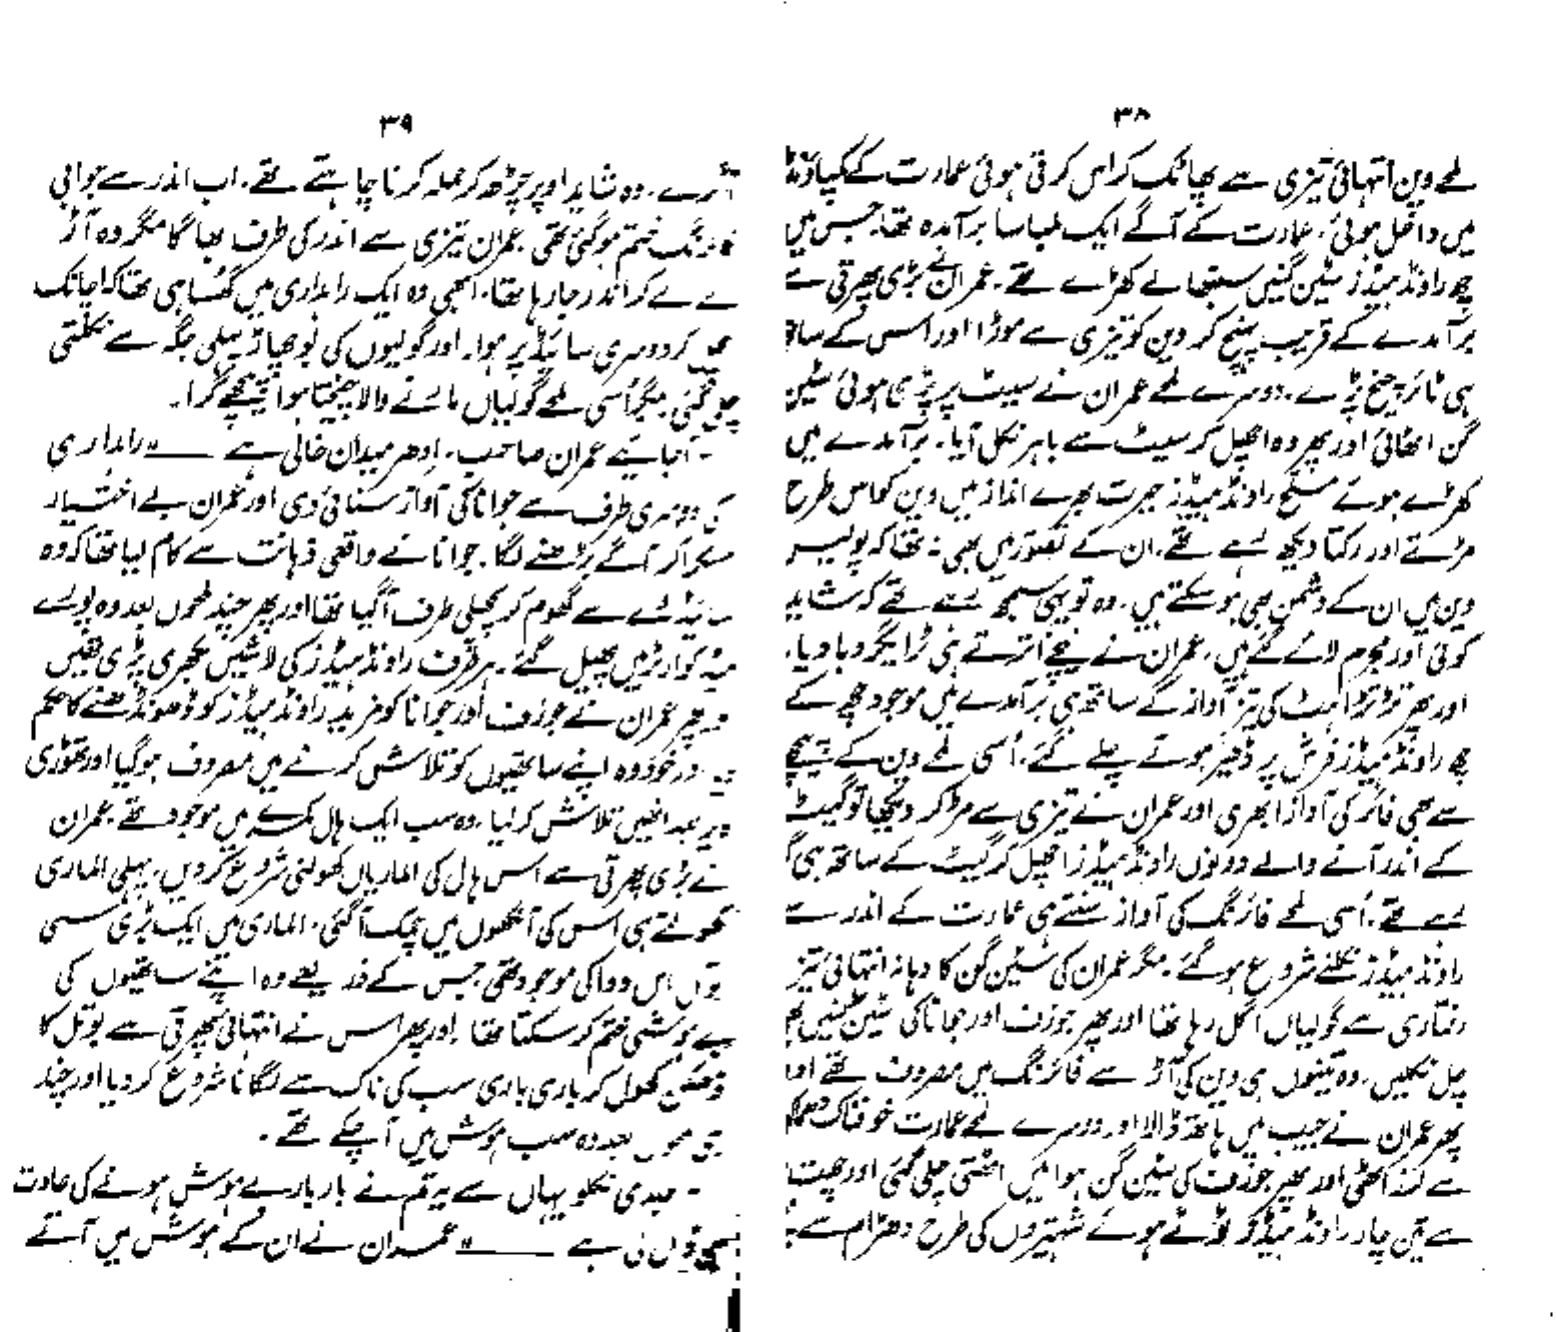 ۳۸
لمحے وین انتہائی تیزی سے پھاٹک کراس کرتی ہوئی عمارت کے کمپاؤنڈ
میں داخل ہوئی۔ عمارت کے آگے ایک لمبا سا برآمدہ تھا۔ جس میں
چھ راونڈ ہیڈز سٹین گنیں سنبھالے کھڑے تھے۔ عمران نے بڑی پھرتی سے
برآمدے کے قریب پہنچ کر وین کو تیزی سے موڑا اور اس کے ساتھ
ہی ٹائر چیخ پڑے۔ دوسرے لمحے عمران نے سیٹ پر پڑی ہوئی سٹین
گن اٹھائی اور پھر وہ اچھل کر سیٹ سے باہر نکل آیا۔ برآمدے میں
کھڑے ہوئے مسلح راونڈ ہیڈز حیرت بھرے انداز میں وین کو اس طرح
مڑتے اور رکتا دیکھ رہے تھے۔ ان کے تصور میں بھی نہ تھا کہ پولیس
وین میں ان کے دشمن بھی ہو سکتے ہیں۔ وہ تو یہی سمجھ رہے تھے کہ شاید
کوئی اور مجرم لائے گئے ہیں۔ عمران نے نیچے اترتے ہی ٹرایگر دبا دیا۔
اور پھر تڑتڑاہٹ کی تیز آواز کے ساتھ ہی برآمدے میں موجود چھ کے
چھ راونڈ ہیڈز فرش پر ڈھیر ہوتے چلے گئے۔ اُسی لمحے وین کے پیچھے
سے بھی فائر کی آواز ابھری اور عمران نے تیزی سے مڑ کر دیکھا تو گیٹ
کے اندر آنے والے دونوں راونڈ ہیڈز اچھل کر گیٹ کے ساتھ ہی
رہے تھے۔ اُسی لمحے فائرنگ کی آواز سنتے ہی عمارت کے اندر سے
راونڈ ہیڈز نکلنے شروع ہو گئے۔ مگر عمران کی سٹین گن کا دہانہ انتہائی تیز
رفتاری سے گولیاں اگل رہا تھا اور پھر جوزف اور جوانا کی سٹین گنیں بھی
چل نکلیں۔ وہ تینوں ہی وین کی آڑ سے فائرنگ میں مصروف تھے اور
پھر عمران نے جیب میں ہاتھ ڈالا اور دوسرے لمحے عمارت خوفناک
سے لرز اٹھی اور پھر جوزف کی سٹین گن ہوا میں اٹھتی چلی گئی اور چھت
سے تین چار راونڈ ہیڈز ٹوٹے ہوئے شہتیروں کی طرح دھڑام سے
۳۹
وہ شاید اوپر چڑھ کر حملہ کرنا چاہتے تھے۔ اب اندر سے جوابی
فائرنگ ختم ہو گئی تھی۔ عمران تیزی سے اندر کی طرف بھاگا مگر وہ آڑ
لے لے کر اندر جا رہا تھا۔ ابھی وہ ایک راہداری میں گھسا ہی تھا کہ اچانک
کر دوسری سائیڈ پر ہوا۔ اور گولیوں کی بوچھاڑ پہلی جگہ سے نکلتی
چلی گئی۔ مگر اُسی لمحے گولیاں مارنے والا چیختا ہوا نیچے گرا۔
"آجائیے عمران صاحب۔ ادھر میدان خالی ہے ـــــ" راہداری
کی دوسری طرف سے جوانا کی آواز سنائی دی اور عمران بے اختیار
مسکرا کر آگے بڑھنے لگا۔ جوانا نے واقعی ذہانت سے کام لیا تھا کہ وہ
سائیڈ سے گھوم کر پچھلی طرف آگیا تھا اور پھر چند لمحوں بعد وہ پورے
ہیڈ کوارٹر میں پھیل گئے۔ ہر طرف راونڈ ہیڈز کی لاشیں بکھری پڑی تھیں
پھر عمران نے جوزف اور جوانا کو مزید راونڈ ہیڈز کو ڈھونڈھنے کا حکم
اور خود وہ اپنے ساتھیوں کو تلاش کرنے میں مصروف ہو گیا اور تھوڑی
دیر بعد انہیں تلاش کر لیا۔ وہ سب ایک ہال کمرے میں موجود تھے۔ عمران
نے بڑی پھرتی سے اس ہال کی الماریاں کھولنی شروع کر دیں۔ پہلی الماری
کھولتے ہی اس کی آنکھوں میں چمک آگئی۔ الماری میں ایک بڑی سی
بوتل اس دوا کی موجود تھی جس کے ذریعے وہ اپنے ساتھیوں کی
بے ہوشی ختم کر سکتا تھا۔ اور پھر اس نے انتہائی پھرتی سے بوتل کا
ڈھکن کھول کر باری باری سب کی ناک سے لگانا شروع کر دیا اور چند
ہی لمحوں بعد وہ سب ہوش میں آ چکے تھے۔
"جلدی نکلو یہاں سے یہ تم نے بار بار بے ہوش ہونے کی عادت
ہے ـــــ" عمران نے ان کے ہوش میں آتے